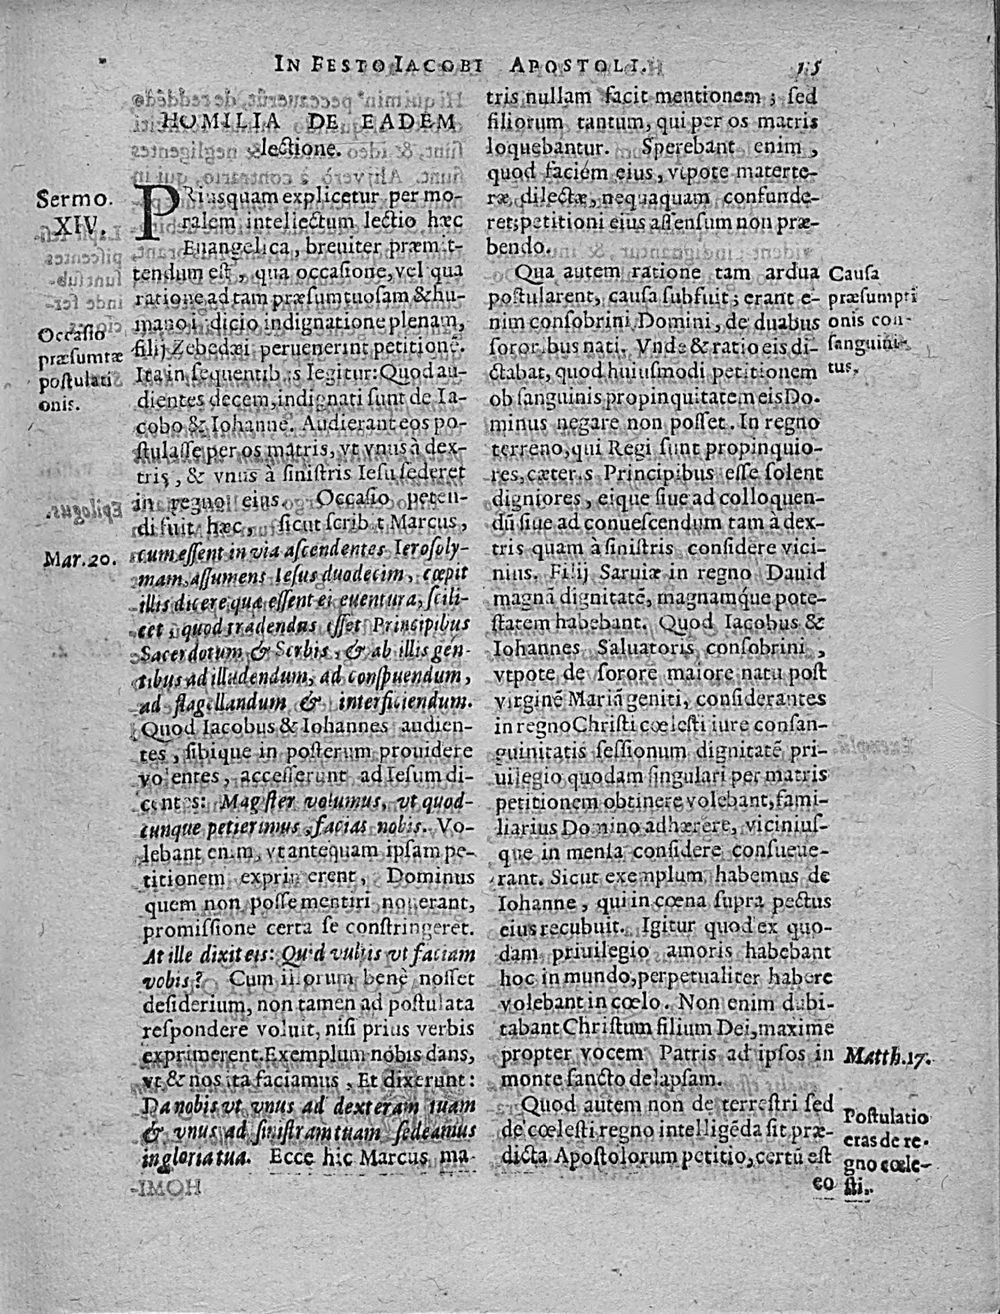 IN FESTO IACOBI APOSTOLI. 15
HOMILIA DE EADEM
lectione.
Sermo.
XIV.
PRiusquam explicetur per mo-
ralem intellectum lectio hæc
Euangelica, breuiter præmit-
tendum est, qua occasione, vel qua
ratione ad tam præsumtuosam & hu-
mano iudicio indignatione plenam,
filij Zebedæi peruenerint petitionẽ.
Ita in sequentibus legitur: Quod au-
dientes decem, indignati sunt de Ia-
cobo & Iohanne. Audierant eos po-
stulasse per os matris, vt vnus à dex-
tris, & vnus à sinistris Iesu sederet
in regno eius. Occasio peten-
di fuit hæc, sicut scribit Marcus,
cum essent in via ascendentes Ierosoly-
mam, assumens Iesus duodecim, cœpit
illis dicere quæ essent ei euentura, scili-
cet, quod tradendus esset Principibus
Sacerdotum & Scribis, & ab illis gen-
tibus ad illudendum, ad conspuendum,
ad flagellandum & interficiendum.
Quod Iacobus & Iohannes audien-
tes, sibique in posterum prouidere
volentes, accesserunt ad Iesum di-
centes: Magister volumus, vt quod-
cunque petierimus, facias nobis. Vo-
lebant enim, vt antequam ipsam pe-
titionem exprimerent, Dominus
quem non posse mentiri nouerant,
promissione certa se constringeret.
At ille dixit eis: Quid vultis vt faciam
vobis? Cum illorum benè nosset
desiderium, non tamen ad postulata
respondere voluit, nisi prius verbis
exprimerent. Exemplum nobis dans,
vt & nos ita faciamus. Et dixerunt:
Da nobis vt vnus ad dexteram tuam
& vnus ad sinistram tuam sedeamus
in gloria tua. Ecce hic Marcus ma-
Occasio
præsumtæ
postulati
onis.
Mar. 20.
tris nullam facit mentionem; sed
filiorum tantum, qui per os matris
loquebantur. Sperebant enim,
quod faciém eius, vtpote materte-
ræ dilectæ, nequaquam confunde-
ret; petitioni eius assensum non præ-
bendo.
Qua autem ratione tam ardua
postularent, causa subfuit; erant e-
nim consobrini Domini, de duabus
sororibus nati. Vnde & ratio eis di-
ctabat, quod huiusmodi petitionem
ob sanguinis propinquitatem eis Do-
minus negare non posset. In regno
terreno, qui Regi sunt propinquio-
res, cæteris Principibus esse solent
digniores, eique siue ad colloquen-
dũ siue ad conuescendum tam à dex-
tris quam à sinistris considere vici-
nius. Filij Saruiæ in regno Dauid
magnã dignitatẽ, magnamq́ue pote-
statem habebant. Quod Iacobus &
Iohannes Saluatoris consobrini,
vtpote de sorore maiore natu post
virginẽ Mariã geniti, considerantes
in regno Christi cœlesti iure consan-
guinitatis sessionum dignitatẽ pri-
uilegio quodam singulari per matris
petitionem obtinere volebant, fami-
liarius Domino adhærere, viciniús-
que in mensa considere consueue-
rant. Sicut exemplum habemus de
Iohanne, qui in cœna supra pectus
eius recubuit. Igitur quod ex quo-
dam priuilegio amoris habebant
hoc in mundo, perpetualiter habere
volebant in cœlo. Non enim dubi-
tabant Christum filium Dei, maxime
propter vocem Patris ad ipsos in
monte sancto delapsam.
Quod autem non de terrestri sed
de cœlesti regno intelligẽda sit præ-
dicta Apostolorum petitio, certũ est
eo
Causa
præsumpti
onis con-
sanguini-
tus.
Matth. 17.
Postulatio
eras de re-
gno cœle-
sti.